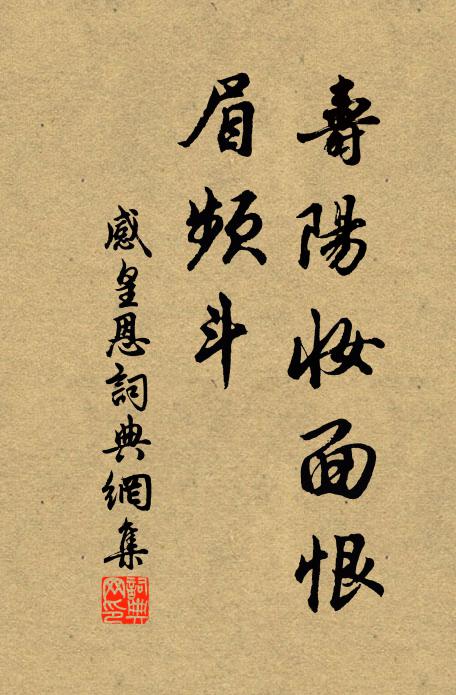 壽陽妝面恨
眉頻斗
感皇恩詞典網集
詞典网印